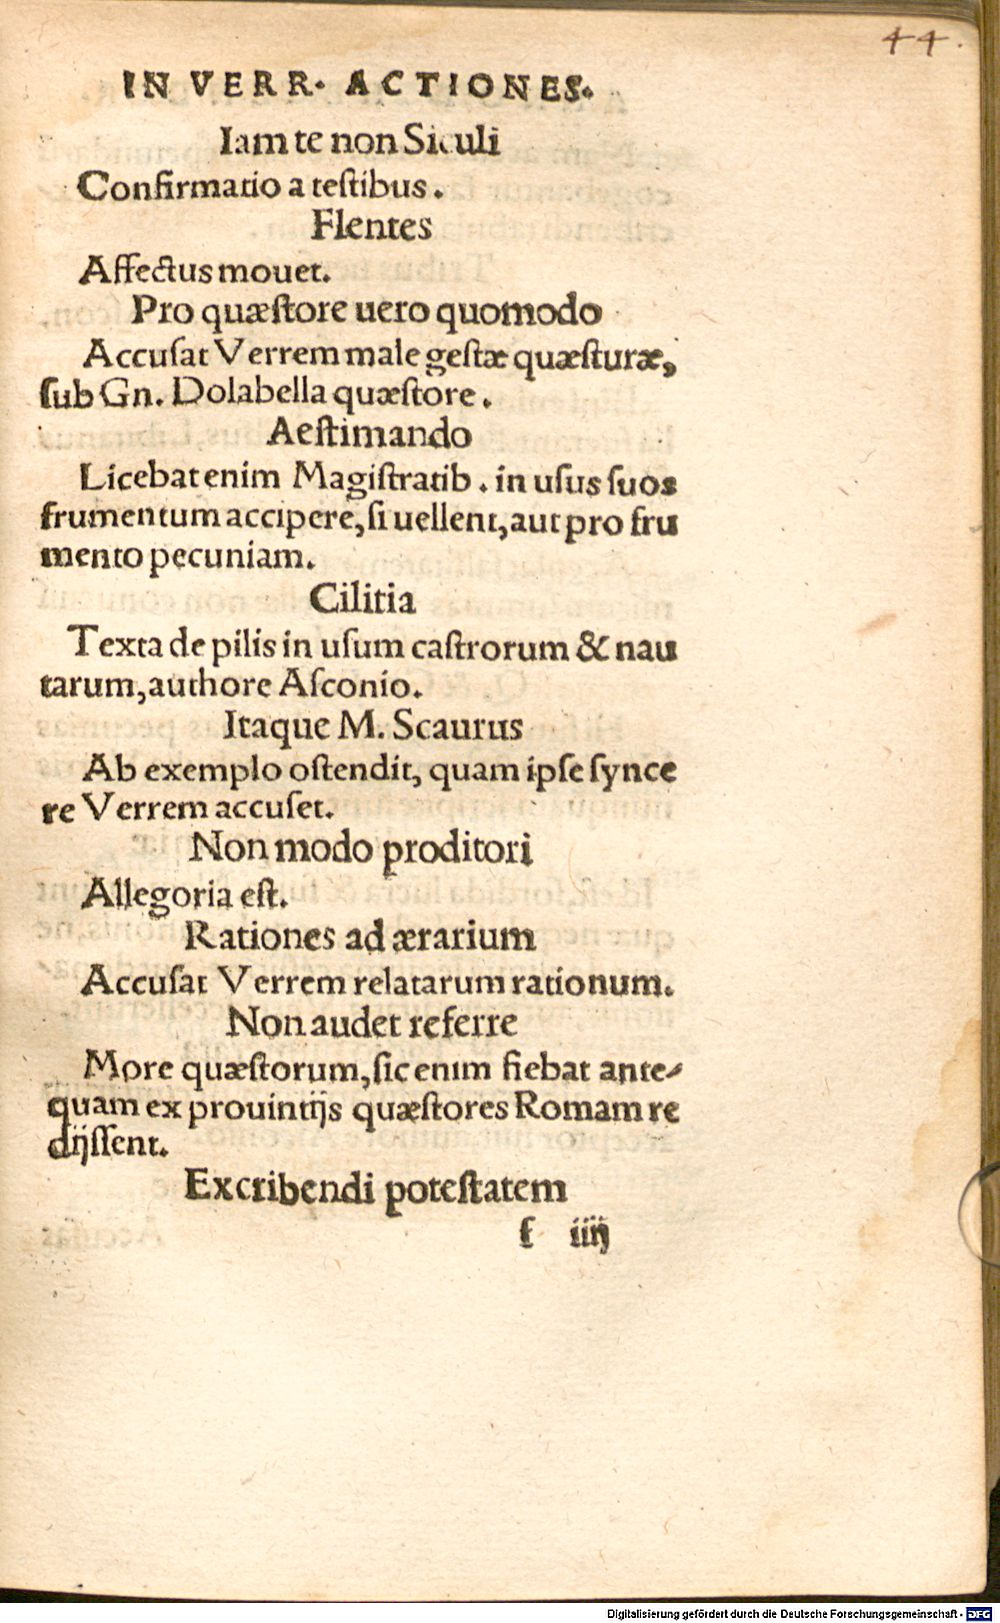 44.
IN VERR. ACTIONES.
Iam te non Siculi
Confirmatio a testibus.
Flentes
Affectus mouet.
Pro quæstore uero quomodo
Accusat Verrem male gestæ quæsturæ,
sub Gn. Dolabella quæstore.
Aestimando
Licebat enim Magistratib. in usus suos
frumentum accipere, si uellent, aut pro fru
mento pecuniam.
Cilitia
Texta de pilis in usum castrorum & nau
tarum, authore Asconio.
Itaque M. Scaurus
Ab exemplo ostendit, quam ipse synce
re Verrem accuset.
Non modo proditori
Allegoria est.
Rationes ad ærarium
Accusat Verrem relatarum rationum.
Non audet referre
More quæstorum, sic enim fiebat ante-
quam ex prouintijs quæstores Romam re
dijssent.
Excribendi potestatem
f iiij
Digitalisierung gefördert durch die Deutsche Forschungsgemeinschaft - DFG